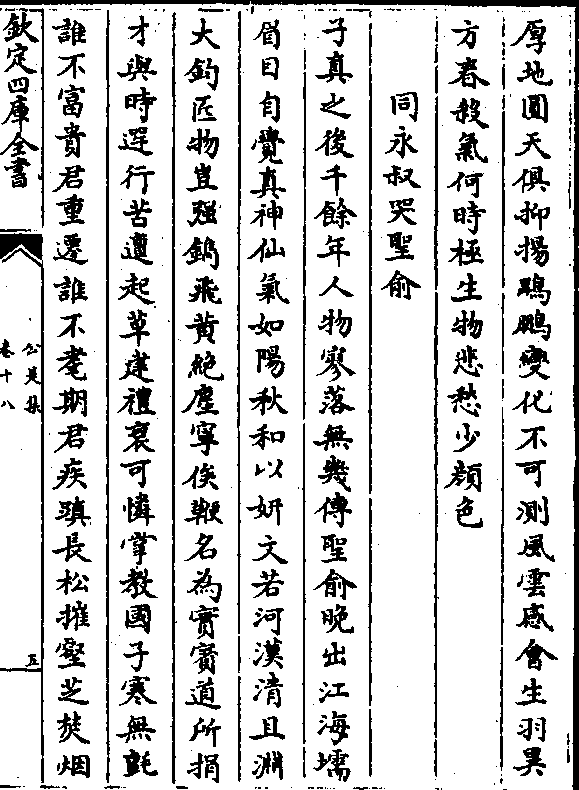 厚地圓天俱抑揚鵾鵬變化不可測風雲感會生羽異
方春殺氣何時極生物悲愁少顔色
同永叔哭聖俞
子真之後千餘年人物寥落無幾傳聖俞晚出江海壖
眉目自覺真神仙氣如陽秋和以妍文若河漢清且淵
大鈞匠物豈强鎸飛黄絶塵寧俟鞭名為實賓道所捐
才與時逕行苦邅起草建禮衰可憐掌教國子寒無氈
誰不富貴君重遷誰不耄期君疾顛長松摧壑芝焚烟
欽定四庫全書
公是集
卷十八
五